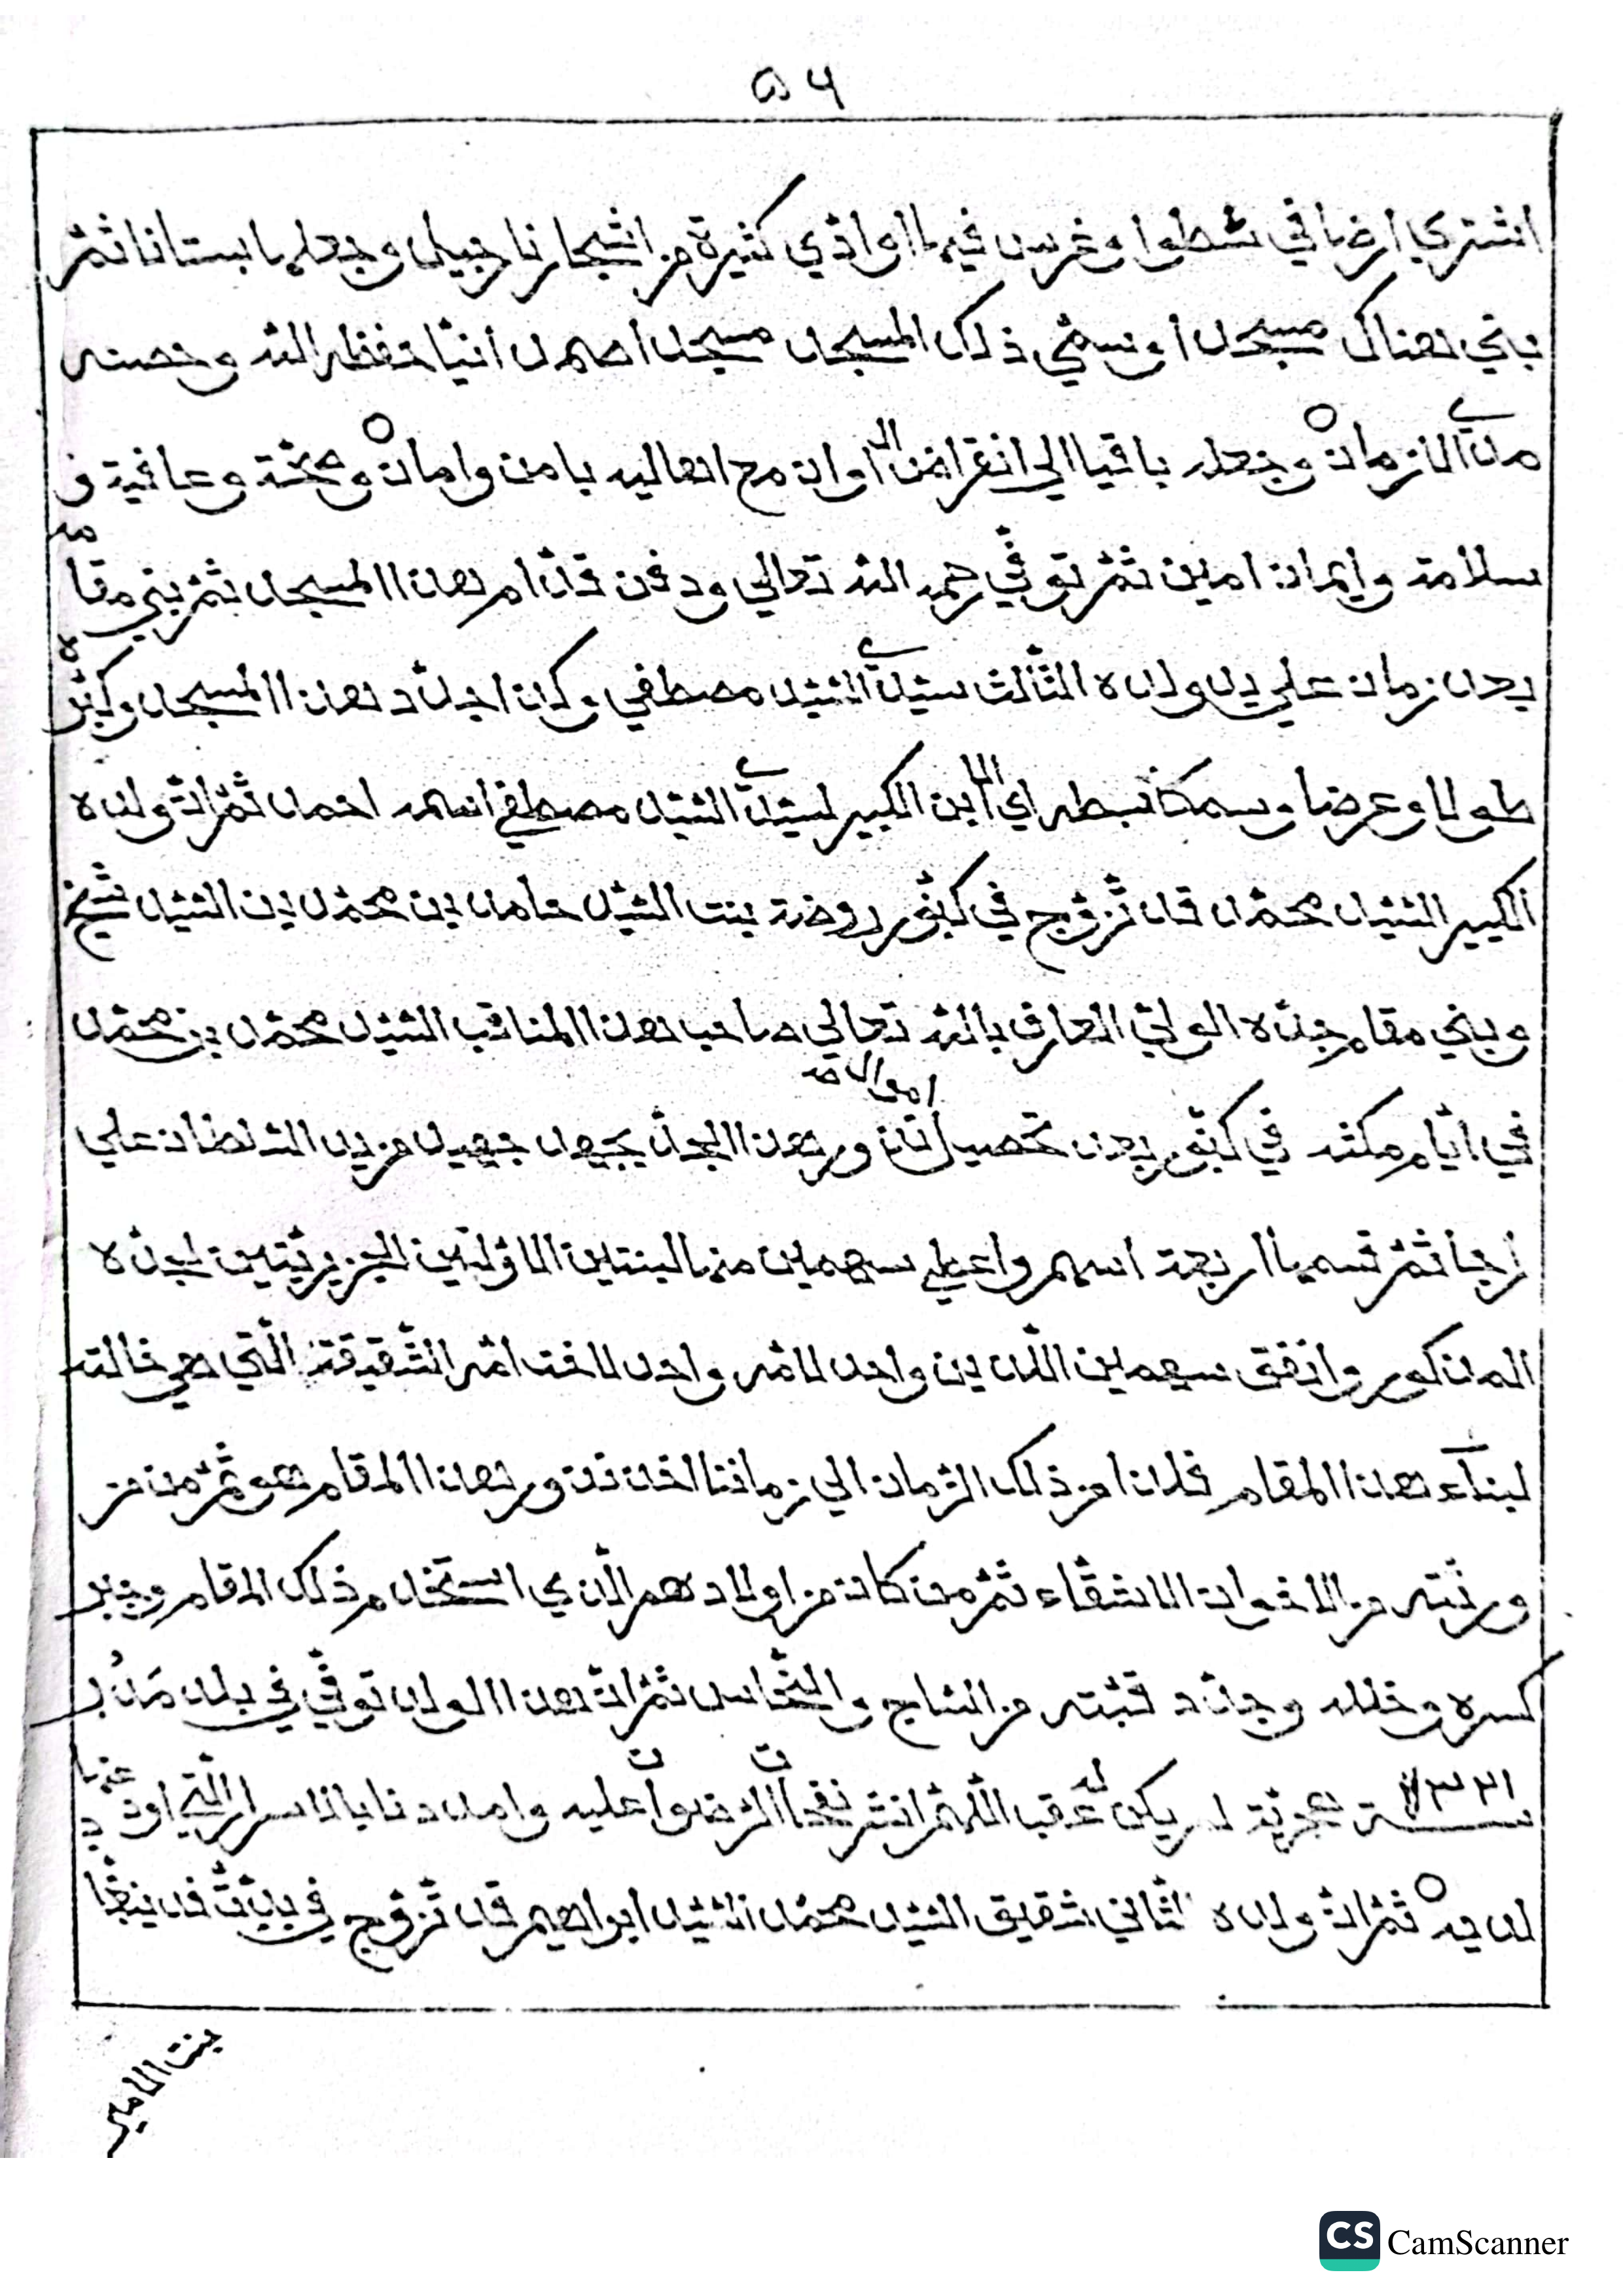 ٥٦
اشتري ارضا في شطوا وغرس فيها اواذي كثيرة من اشجار نارجيل وجعلها بستانا ثمّ
بني هناك مسجدا وسمّي ذلك المسجد مسجدا حفظه الله وحصنه
مدي الازمان وجعله باقيا الي انقراض الاوان مع اهاليه بامن وامان وصحّة وعافية و
سلامة وايمان امين ثمّ توفّي رحمه الله تعالي ودفن قدّام هذا المسجد ثمّ بني مقامه
بعد زمان علي يد ولده الثالث سيّدي السّيّد مصطفي وكذا جدّد هذا المسجد وكبّره
طولا وعرضا وسمكا سبطه اي الابن الكبير لسيّدي السّيّد مصطفي اسمه احمد ثمّ انّ ولده
الكبير السّيّد محمّد قد تزوّج في كنّور روضة بنت السّيّد حامد بن محمّد بن السّيّد شيخ
وبني مقام جدّه الوليّ العارف بالله تعالي صاحب هذا المناقب السّيّد محمّد بن محمّد
في ايّام مكثه في كنّور بعد تحصيل امواله هذا الجدّ بجهد جهيد من يد السّلطان علي
راجا ثمّ قسمها اربعة اسهم واعطي سهمين منها لبنتين الاوّلتين الجزيريّتين لجدّه
المذكور وانفق سهمين اللذين واحد لامّه واحد لاخت امّه الشّقيقة الّتي هي خالته
لبناء هذا المقام فلذا من ذلك الزّمان الي زماننا هذا المقام هو ثمّ من من
ورثته من الاخوان الاشقّاء ثمّ من كان من اولادهم الّذي استخدم ذلك المقام وجبر
كسره وخلله وجدّد قبّته من السّاج والنّحاس ثمّ انّ هذا الولد توفّي في بلد
سنة ١٣٣١ هجريّة لم يكن له عقب اللّهمّ انشر نفحات الرّضوان عليه وامددنا بالاسرار الّتي اودعتها
لديه ثمّ انّ ولده الثّاني شقيق السّيّد محمّد السّيّد ابراهيم قد تزوّج في
بنت الامير
CS CamScanner